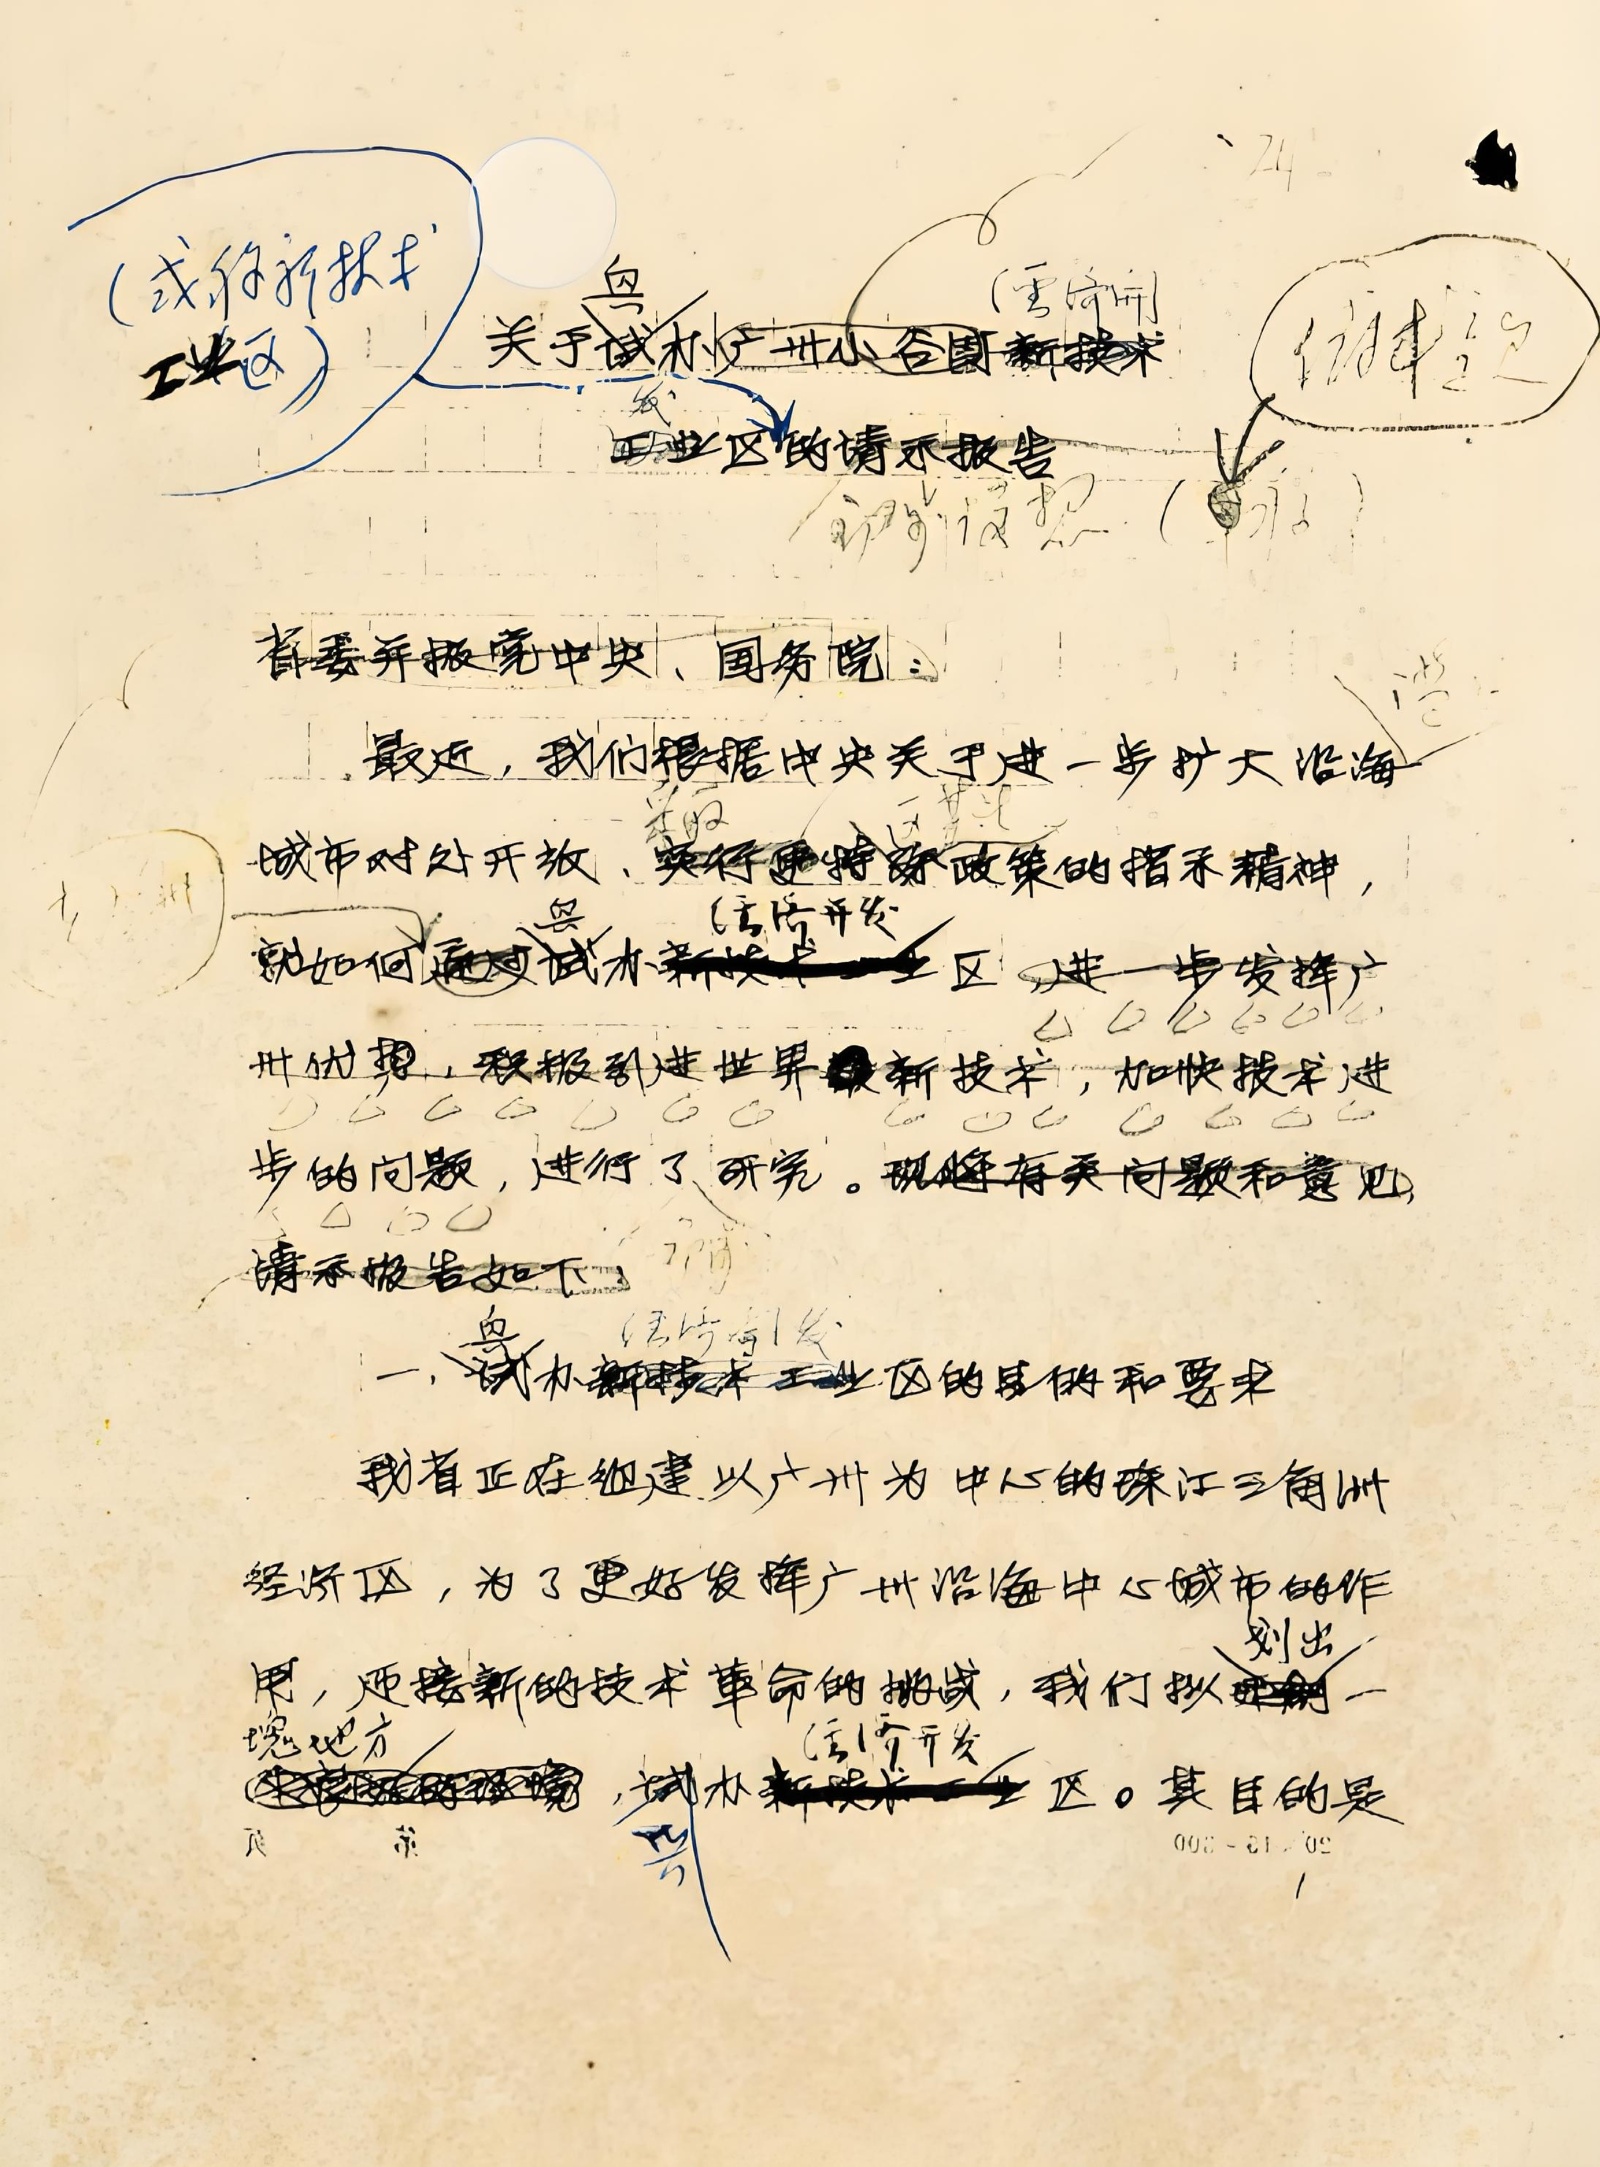 (或称新技术
工业区)
(经济开
关于试办广州小谷围新技术
工业区的请示报告
初步设想
省委并报党中央、国务院:
最近,我们根据中央关于进一步扩大沿海
城市对外开放、实行更特殊政策的指示精神,
经济开发
就如何通过试办新技术工业区,进一步发挥广
州优势,积极引进世界最新技术,加快技术进
步的问题,进行了研究。现将有关问题和意见,
请示报告如下:
经济开发
一、试办新技术工业区的目的和要求
我省正在组建以广州为中心的珠江三角洲
经济区,为了更好发挥广州沿海中心城市的作
划出
用,迎接新的技术革命的挑战,我们拟一
块地方
经济开发
,试办新技术工业区。其目的是
第 页